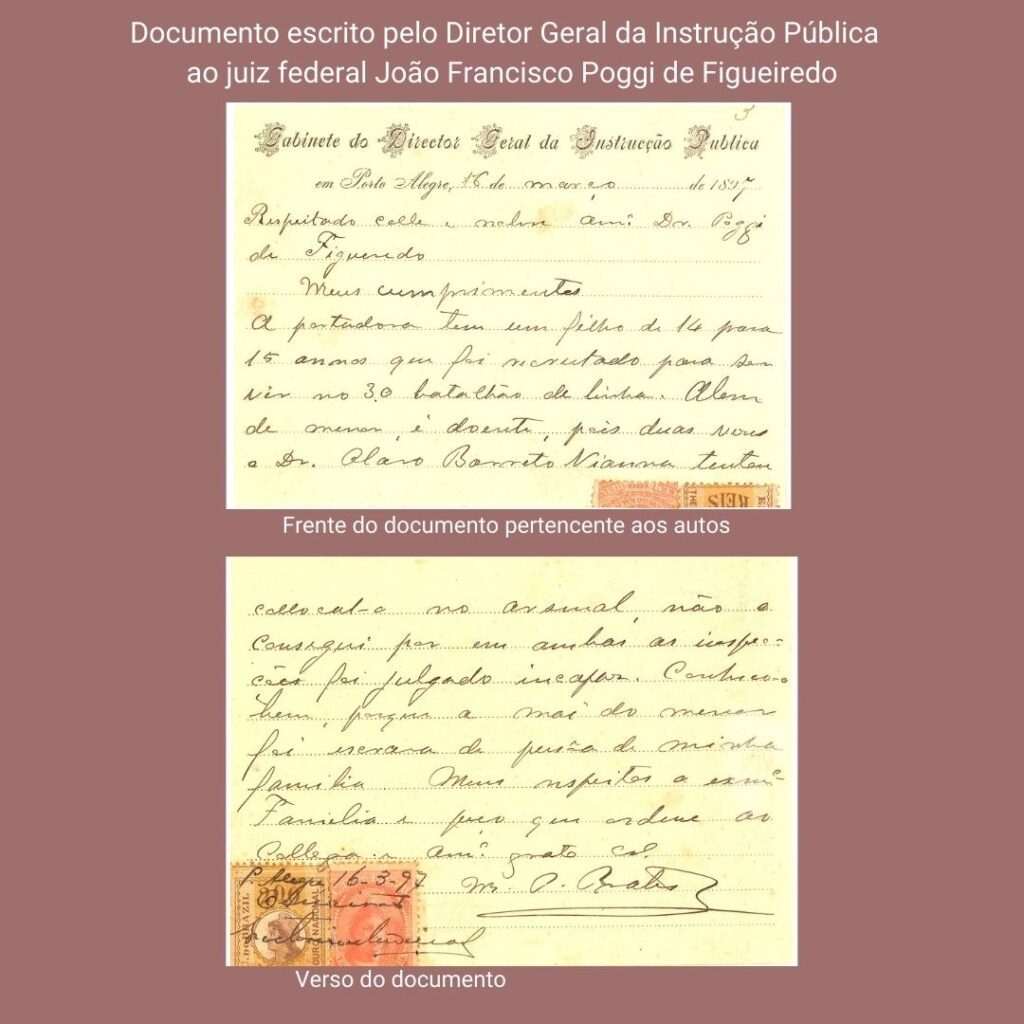 Documento escrito pelo Diretor Geral da Instrução Pública
ao juiz federal João Francisco Poggi de Figueiredo
3
Gabinete do Director Geral da Instrucção Publica
em Porto Alegre, 16 de março de 1897
Respeitado colle e nobre amº Dr. Poggi
de Figueredo
Meus cumprimentos
A portadora tem um filho de 14 para
15 annos que foi recrutado para ser
vir no 30 batalhão de linha. Alem
de menor, é doente, pois duas vezes
o Dr. Claro Barreto Vianna tentou
REIS
Frente do documento pertencente aos autos
collocal-o no arsenal, não o
consegui por em ambas as inspec-
ções foi julgado incapaz. Conheco-o
bem, porque a mai do menor
foi escrava de pessôa de minha
familia. Meus respeitos a exmª
Familia e peço que ordene ao
Collega e amº grato col.
P. Alegre 16-3-97
M. P. Prates
Verso do documento